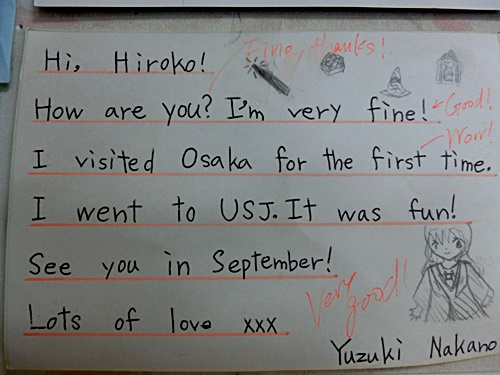 Hi, Hiroko! Fine, thanks!
How are you? I'm very fine! Good!
Wow!
I visited Osaka for the first time.
I went to USJ. It was fun!
See you in September!
Very good!
Lots of love xxx
Yuzuki Nakano